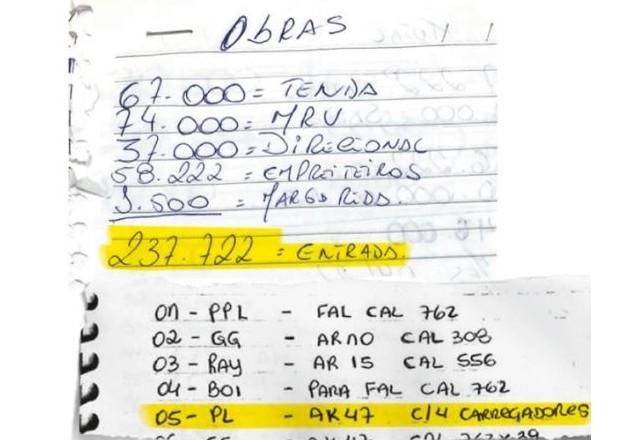 — OBRAS
67.000 = TENDA
74.000 = MRV
37.000 = DIRECIONAL
58.222 = EMPREITEIROS
1.500 = MARGARIDA.
237.722 = ENTRADA.
01 - PPL - FAL CAL 762
02 - GG - AR10 CAL 308
03 - RAY - AR 15 CAL 556
04 - BOI - PARA FAL CAL 762
05 - PL - AK47 C/4 CARREGADORES